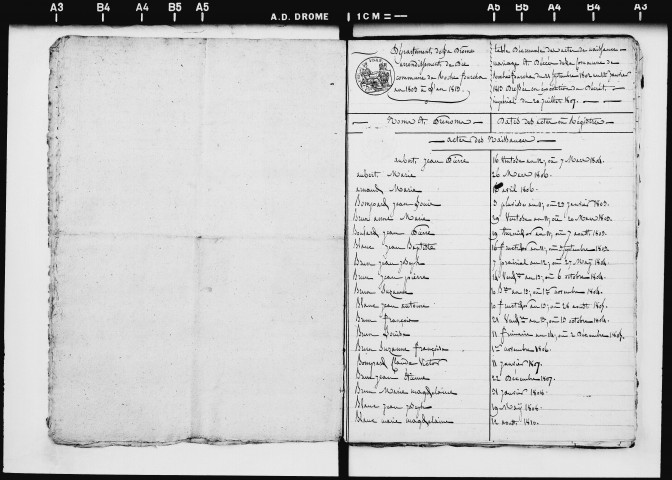 A3 B4 A4 B5 A5 A.D. DROME 1 CM = A5 B5 A4 B4 A3
Département de la Drôme
arrondissement de Die
commune de
an 1803 à 1813
table Décennale des actes de naissance
mariage et Décès de la commune de
1813 Dressée en exécution du Décret
impérial du 20 juillet 1807.
Noms et Prénoms Dates des actes au Registre
actes des Naissances
aubert jean Pierre 16 Ventose an 12, ou 7 Mars 1804.
aubert Marie 26 Mars 1806.
arnaud Marie avril 1806.
jean Louis 3 pluviose an 11, ou 23 janvier 1803.
Brun anne Marie 29 Ventose an 11, ou 20 Mars 1803.
jean Pierre 19 thermidor an 11, ou 7 août 1803.
Blanc jean Baptiste 16 fructidor an 11, ou Septembre 1803.
Brun jean joseph 7 prairial an 12, ou 27 Mai 1804.
Brun jean pierre 14 Vend.re an 13, ou 6 octobre 1804.
Brun Suzanne 10 B.re an 13, ou 1er novembre 1804.
Blanc jean antoine fructidor an 13, ou 26 août 1805.
Brun françois 21 Vend.re an 13, ou 13 octobre 1804.
Brun Louise 11 frimaire an 14, ou 2 Décembre 1805.
Brun Suzanne françoise novembre 1806.
Claude Victor 11 janvier 1807.
jean Etienne 22 Décembre 1807.
Brun Marie magdelaine 21 janvier 1808.
Blanc jean joseph 19 Mai 1808.
Blanc marie magdelaine 12 août 1810.